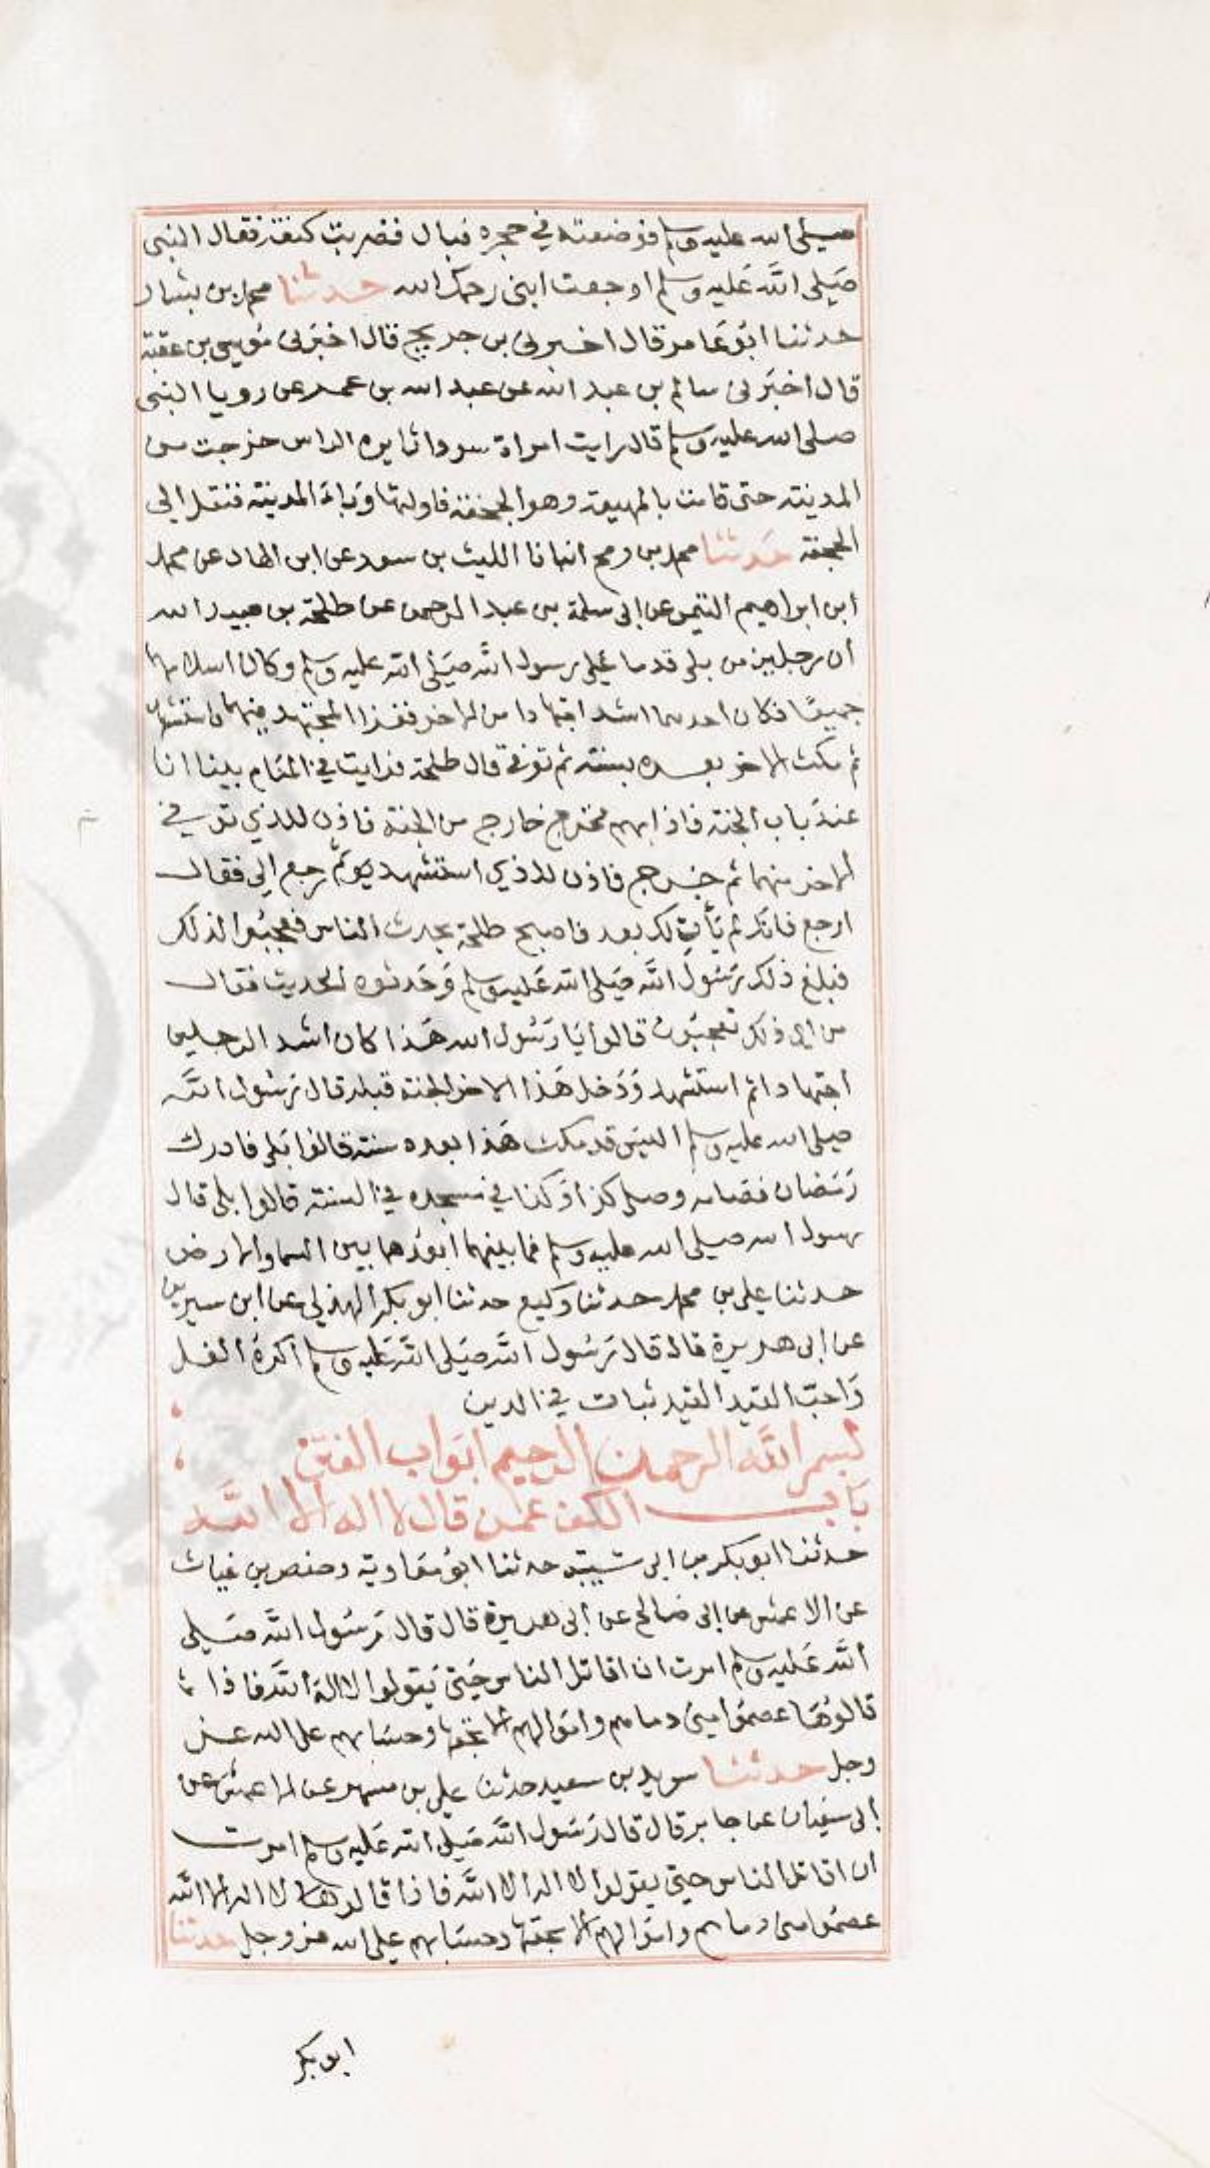 صلى الله عليه وسلم فوضعته في حجره فبال فضربت كتفه فقال النبي
صَلى الله عَليه وسلم اوجعت ابنى رحمك الله حدثنا محمد بن بشار
حدثنا ابوُ عَامر قال اخبرنى بن جريج قال اخبرنى مُوسى بن عقبة
قال اخبَرنى سالم بن عبد الله عن عبد الله بن عمر عن رويا النبى
صلى الله عليه وسلم قال رايت امراة سودا ثايره الراس خرجت من
المدينة حتى قامت بالمهيعة وهو الجحفة فاولتها وَباءَ المدينة فنقل الى
الجحفة حَدثنا محمد بن رمح انبانا الليث بن سعد عن ابن الهاد عن محمد
ابن ابراهيم التيمى عن ابى سلمة بن عبد الرحمن عن طلحة بن عبيد الله
أن رجلين من بلى قدما عَلى رسول الله صَلى الله عليه وسلم وكان اسلامهما
جميعًا فكان احدهما اشد اجتهادا من الاخر فغزا المجتهد منهما فاستشهد
ثم مكث الاخر بعده بسنة ثم توفى قال طلحة فرايت في المنام بينا انا
عندَ باب الجنة فاذا بهم فخرج خارج من الجنة فاذن للذي توفي
الاخر منهما ثم خرج فاذن للذي استشهد ثم رجع الى فقال
ارجع فانك لم يَأنِ لك بعد فاصبح طلحة يحدث الناس فعجبُوا لذلك
فبلغ ذلك رَسُولَ الله صَلى الله عَليه وسلم وَحَدثوه الحديث فقال
من اى ذلك تعجبُون قالوا يَا رَسُول الله هَذا كان اشد الرجلين
اجتهادا ثم استشهد وَدَخل هَذا الاخر الجنة قبله قال رَسُول الله
صلى الله عليه وسلم اليسَ قد مكث هَذا بعده سنة قالوا بَلى فادرك
رَمَضان فصَامه وصلى كذا وَكذا في سجده في السنة قالوا بلى قال
رسول الله صلى الله عليه وسلم فما بينهما ابعدُ مما بين السما والارض
حدثنا على بن محمد حدثنا وكيع حدثنا ابو بكر الهذلى عن ابن سيرين
عن ابى هريرة قال قال رَسُول الله صَلى الله عَليه وسلم اكرهُ الغل
وَاحبّ القيد القيد ثبات في الدين
بسم الله الرحمن الرحيم ابوَاب الفتن
بَاب الكف عمن قال لا اله الا الله
حدثنا ابو بكر بن ابى شيبة حدثنا ابوُ مُعَاوية وحفص بن غياث
عن الاعمش عن ابى صَالح عن أبى هريرة قال قال رَسُول الله صَلى
الله عَليه وسلم امرت ان اقاتل الناس حَتى يَقولوا لا اله الا الله فاذا
قالوُهَا عصمُوا منى دماءهم وامَوالهم الا بحقها وحسَابهم على الله عز
وجل حدثنا سويد بن سعيد حدثنا علي بن مسهر عن الاعمش عن
أبى سفيَان عن جابر قال قال رَسُول الله صَلى الله عَليه وسلم امرت
ان اقاتل الناس حتى يقولوا لا اله الا الله فاذا قالوها لا اله الا الله
عصمُوا منى دماءهم وامَوالهم الا بحقها وحسَابهم على الله عز وجل حدثنا
ابو بكر